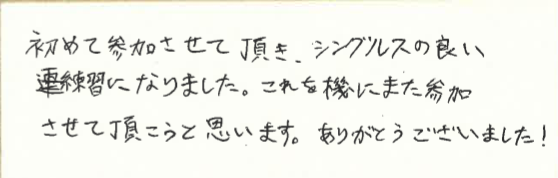 初めて参加させて頂き、シングルスの良い
練習になりました。これを機にまた参加
させて頂こうと思います。ありがとうございました!